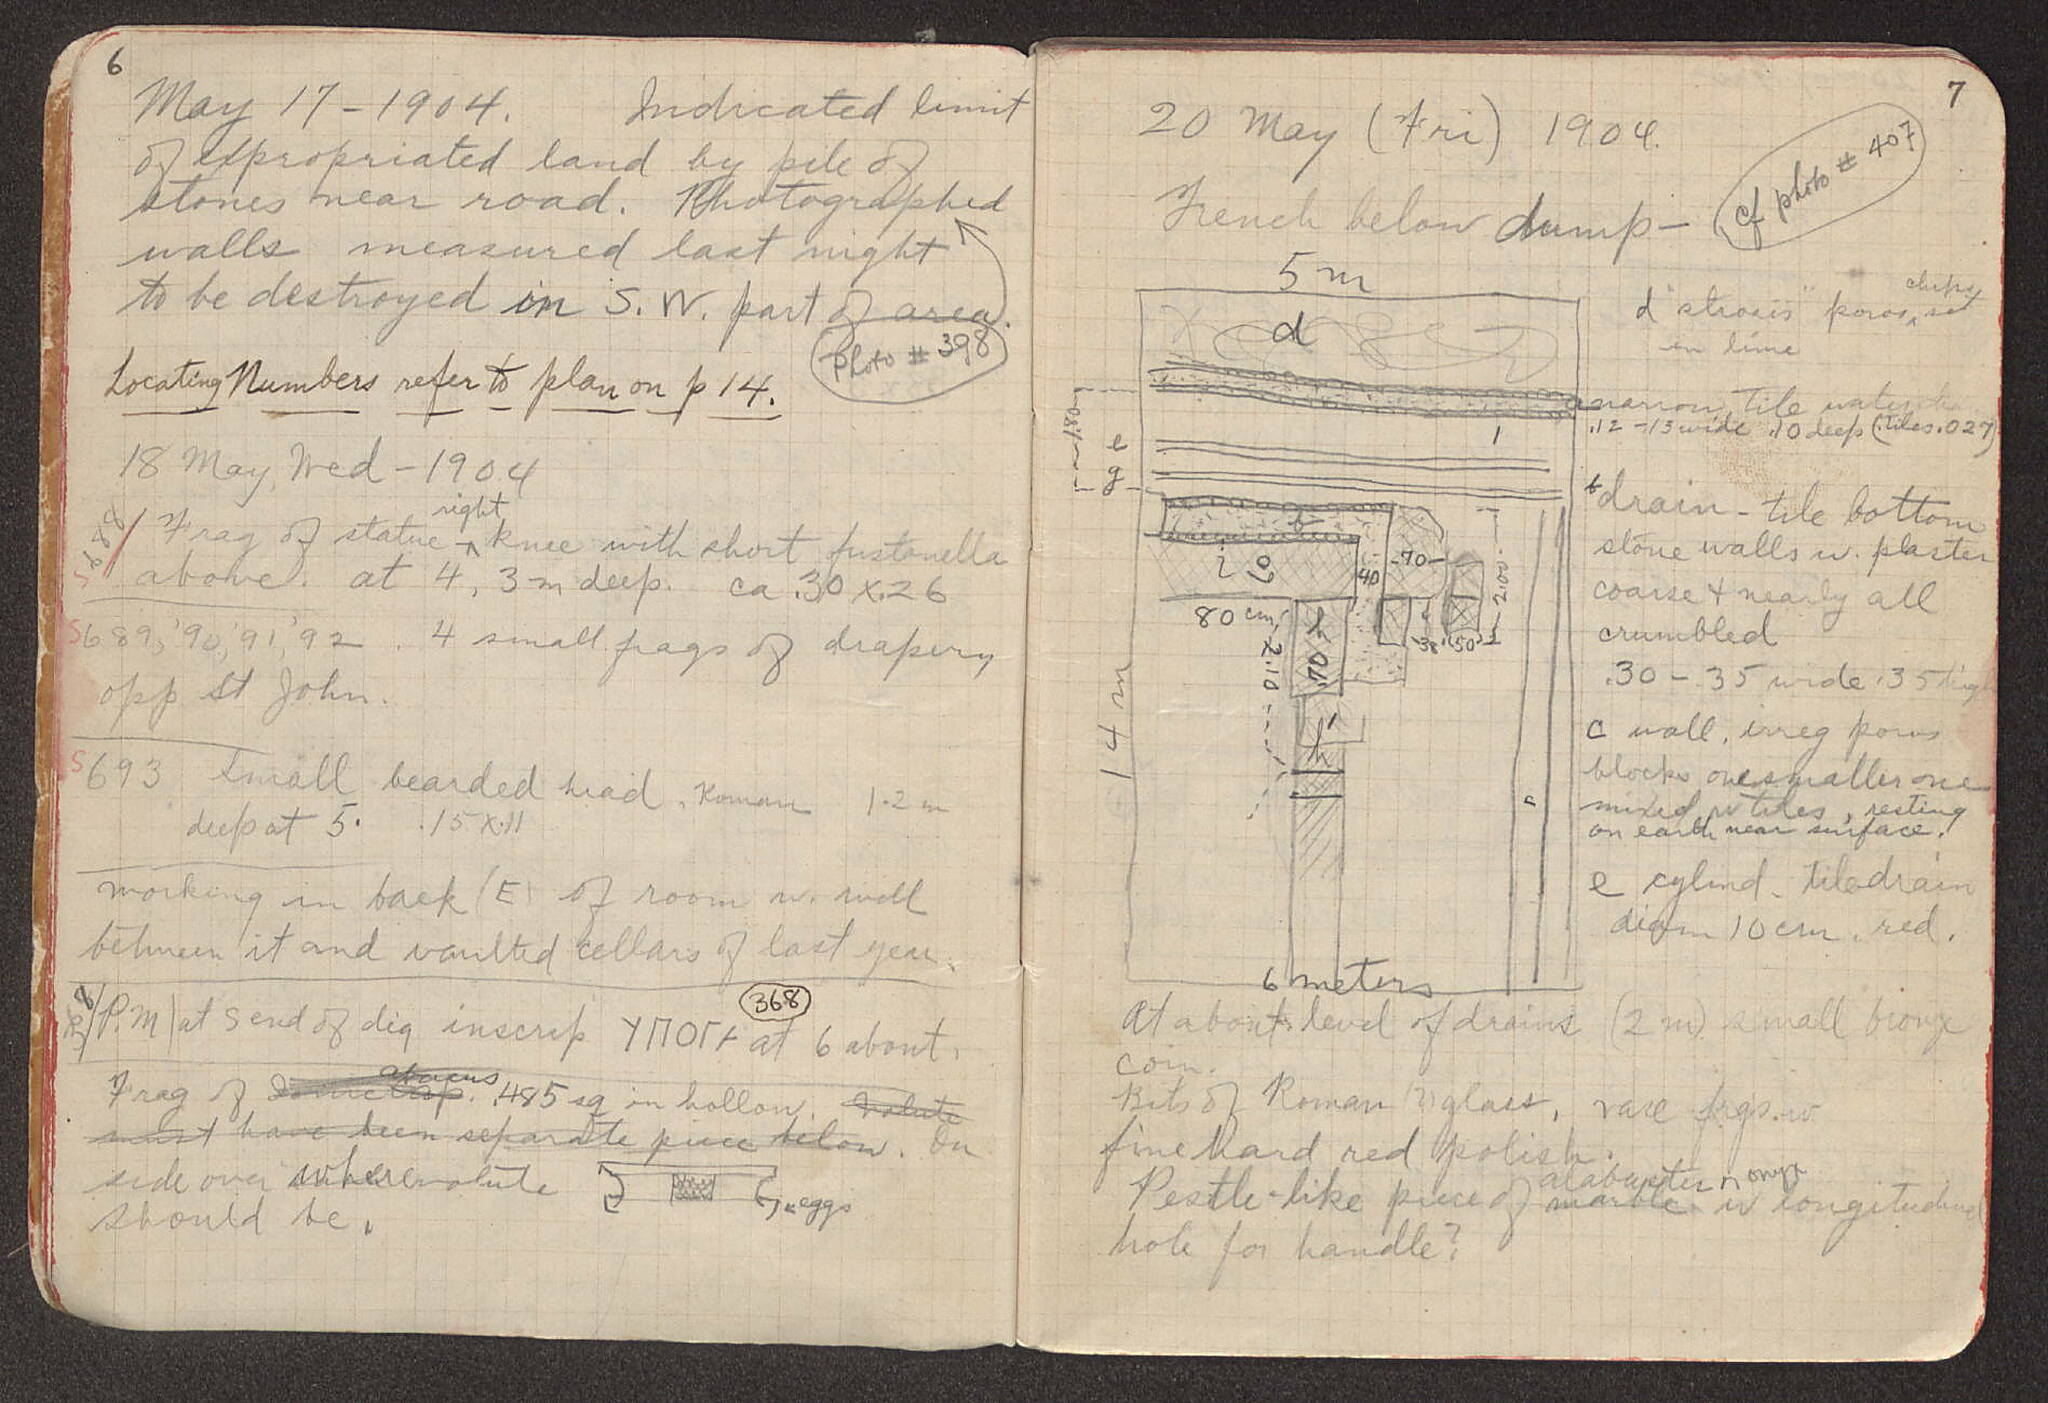 6
May 17 - 1904. Indicated limit
of expropriated land by pile of
stones near road. Photographed
walls measured last night
to be destroyed in S.W. part of area.
Photo # 398
Locating Numbers refer to plan on p 14.
18 May, Wed - 1904
right
S688 / Frag of statue - ^ knee with short fustanella
above. at 4, 3m deep. ca .30 x .26
S689, '90, '91, '92. 4 small frags of drapery
opp St John.
S693 Small bearded head, Roman 1.2 m
deep at 5. .15 x .11
working in back (E) of room w. well
between it and vaulted cellars of last year.
368
P.M) at S end of dig inscrip ΥΠΟΓ+ at 6 about.
abacus
Frag of .485 sq in hollow. Volute
must have been separate piece below. On
side over where volute
eggs
should be.
7
20 May (Fri) 1904.
cf photo # 407
Trench below dump -
5 m
d
chips
d "strosis" poros, ^ set
in lime
a narrow tile
.12 - 13 wide .10 deep (tiles .027)
1.80
e
g
b drain - tile bottom
stone walls w. plaster
coarse & nearly all
crumbled
.30 - .35 wide .35 high
b
i
60
40
.70
2.00
80 cm
h
.70
2.10
38
.50
14 m
c
c wall, irreg poros
blocks one smaller one
mixed w tiles, resting
on earth near surface.
e cylind. tile drain
diam 10 cm. red.
6 meters
At about level of drains (2 m) small bronze
coin.
Bits of Roman (?) glass, vase frgs. w
fine hard red polish.
alabaster or onyx
Pestle-like piece of marble w longitudinal
hole for handle?